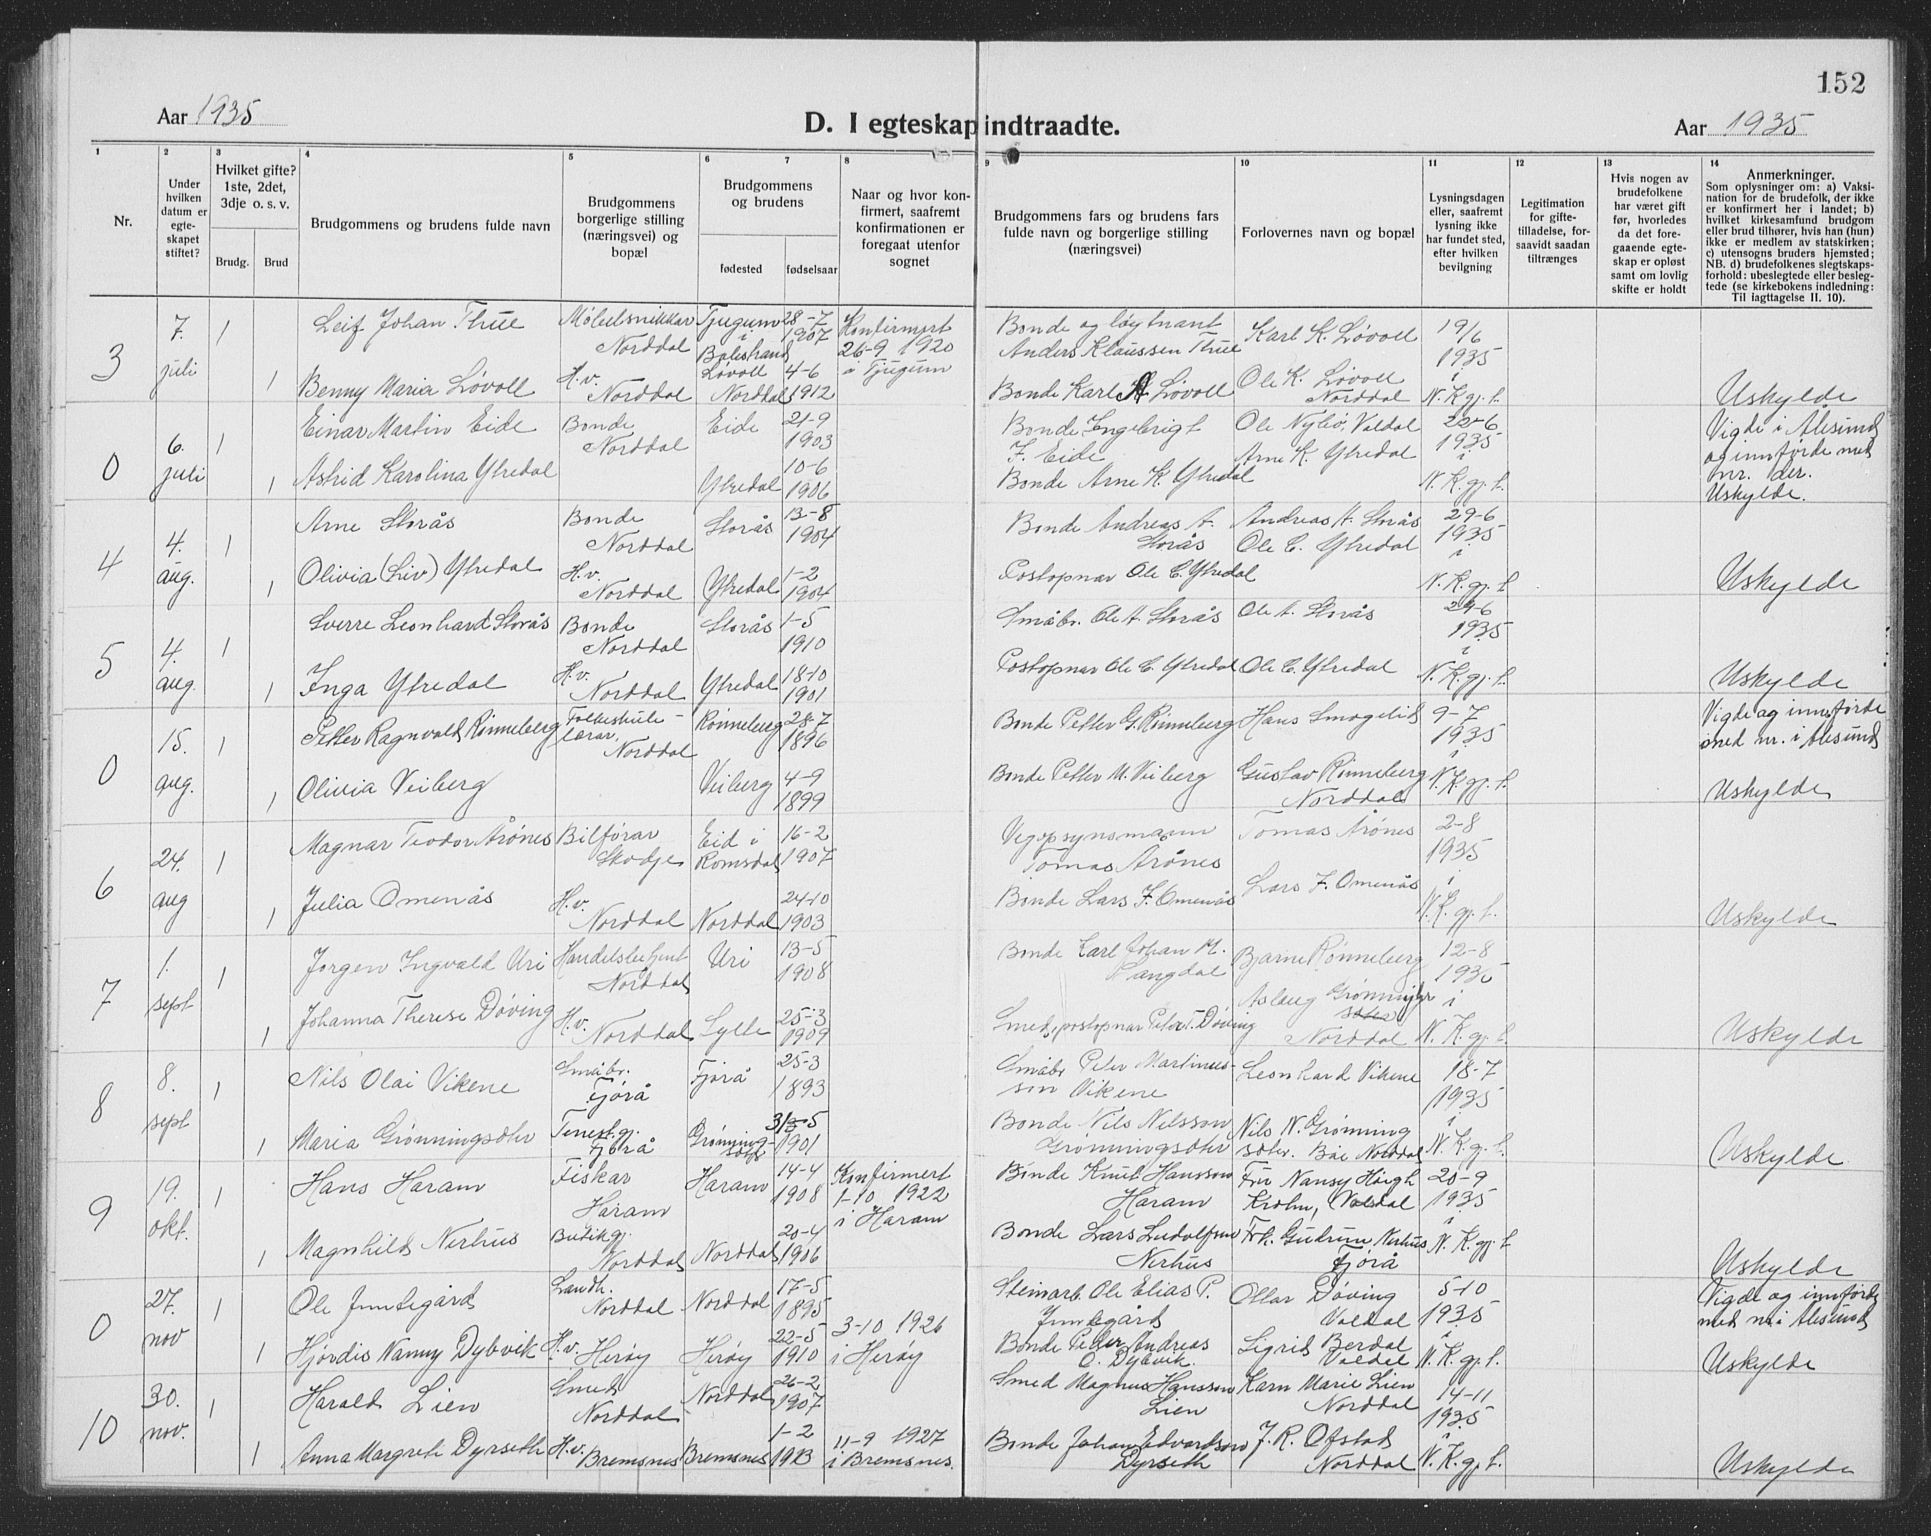 152
Aar 1935
D. I egteskap indtraadte.
Aar 1935
1 2 3 4 5 6 7 8 9 10 11 12 13 14
Nr.
Under hvilken datum er egte-skapet stiftet?
Hvilket gifte? 1ste, 2det, 3dje o. s. v.
Brudg.
Brud
Brudgommens og brudens fulde navn
Brudgommens borgerlige stilling (næringsvei) og bopæl
Brudgommens og brudens
fødested
fødselsaar
Naar og hvor kon-firmert, saafremt konfirmationen er foregaat utenfor sognet
Brudgommens fars og brudens fars fulde navn og borgerlige stilling (næringsvei)
Forlovernes navn og bopæl
Lysningsdagen eller, saafremt lysning ikke har fundet sted, efter hvilken bevilgning
Legitimation for gifte-tilladelse, for-saavidt saadan tiltrænges
Hvis nogen av brudefolkene har været gift før, hvorledes da det fore-gaaende egte-skap er opløst samt om lovlig skifte er holdt
Anmerkninger. Som oplysninger om: a) Vaksi-nation for de brudefolk, der ikke er konfirmert her i landet; b) hvilket kirkesamfund brudgom eller brud tilhører, hvis han (hun) ikke er medlem av statskirken; c) utensogns bruders hjemsted; NB. d) brudefolkenes slegtskaps-forhold: ubeslegtede eller besleg-tede (se kirkebokens indledning: Til iagttagelse II. 10).
3 7. juli 1 Leif Johan Thue Møbelsnikkar Norddal Tjugum i Balestrand 28-7 1907 Konfirmert 26-9 1920 i Tjugum Bonde og løytnant Anders Klaussen Thue Karl K. Løvoll 19/6 1935
1 Benny Maria Løvoll H.v. Norddal Løvoll Norddal 4-6 1912 Bonde Karl K. Løvoll Ole K. Løvoll Norddal i N. K. gj. h. Uskylde
0 6. juli 1 Einar Martin Eide Bonde Norddal Eide 21-9 1903 Bonde Ingebrigt J. Eide Ole Nybø, Valdal 22-6 1935 Vigde i Ålesund og innførde med nr. der.
1 Astrid Karolina Ytredal Ytredal 10-6 1906 Bonde Arne K. Ytredal Arne K. Ytredal i N. K. gj. h. Uskylde.
4 4. aug. 1 Arne Storås Bonde Norddal Storås 13-8 1904 Bonde Andreas A. Storås Andreas A. Storås 29-6 1935
1 Olivia (Liv) Ytredal H.v. Norddal Ytredal 1-2 1904 Postopnar Ole C. Ytredal Ole C. Ytredal i N. K. gj. h. Uskylde
5 4. aug. 1 Sverre Leonhard Storås Bonde Norddal Storås 1-5 1910 Småbr. Ole A. Storås Ole A. Storås 29-6 1935
1 Inga Ytredal H.v. Norddal Ytredal 18-10 1901 Postopnar Ole C. Ytredal Ole C. Ytredal i N. K. gj. h. Uskylde
0 15. aug. 1 Petter Ragnvald Rønneberg Folkeskule-lærar, Norddal Rønneberg 28-7 1896 Bonde Petter G. Rønneberg Hans Smogelid 9-7 1935 Vigde og innførde med nr. i Ålesund
1 Olivia Veiberg Veiberg 4-9 1899 Bonde Petter M. Veiberg Gustav Rønneberg Norddal i N. K. gj. h. Uskylde
6 24. aug 1 Magnar Teodor Årønes Bilførar Skodje Eid i Romsdal 16-2 1907 Vegopsynsmann Tomas Årønes Tomas Årønes 2-8 1935
1 Julia Omenås H.v. Norddal Norddal 24-10 1903 Bonde Lars J. Omenås Lars J. Omenås i N. K. gj. h. Uskylde
7 1. sept 1 Jørgen Ingvald Uri Handelsbetjent Norddal Uri 13-5 1908 Bonde Karl Johan M. Langdal Bjarne Rønneberg 12-8 1935
1 Johanna Therese Døving H.v. Norddal Sylte 25-3 1909 Smed, postopnar Peter T. Døving Aslaug Grønning Norddal i N. K. gj. h. Uskylde
8 8. sept 1 Nils Olai Vikene Småbr. Fjørå Fjørå 25-3 1893 Småbr Peter Martinus-son Vikene Leonhard Vikene 18-7 1935
1 Maria Grønningsætr Tenestgj. Fjørå Grønning-sætr 31-5 1901 Bonde Nils Nilsson Grønningsætr Nils N. Grønning sætr. Bøe Norddal i N. K. gj. h. Uskylde
9 19. okt. 1 Hans Haram Fiskar Haram Haram 14-4 1908 Konfirmert 1-10 1922 i Haram Bonde Knut Hansson Haram Fru Nansy Høigh Krohn, Valdal 20-9 1935
1 Magnhild Nerhus Butikgj. Norddal Norddal 20-4 1906 Bonde Lars Ludolfsen Nerhus Frk. Gudrun Nerhus Fjørå i N. K. gj. h. Uskylde
0 27. nov 1 Ole Inndegård Landh. Norddal Norddal 17-5 1895 Steinarb. Ole Elias P. Inndegård Ottar Døving Valdal 5-10 1935 Vigde og innførde med nr. i Ålesund
1 Hjørdis Nanny Dybvik H.v. Herøy Herøy 22-5 1910 3-10 1926 i Herøy Bonde Peder Andreas O. Dybvik. Sigrid Berdal Valdal i N. K. gj. h. Uskylde
10 30. nov. 1 Harald Lien Smed Norddal Norddal 26-2 1907 Smed Magnus Hansson Lien Karn Marie Lien Norddal 14-11 1935
1 Anna Margrete Dyrseth H.v. Bremsnes Bremsnes 1-2 1913 11-9 1927 i Bremsnes. Bonde Johan Edvardson Dyrseth J. R. Ofstad Norddal i N. K. gj. h. Uskylde